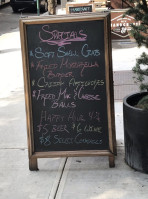 Specials
* Soft Shell Crab
* Fried Mozzarella
Burger
* Crispy Artichokes
* Fried Mac & Cheese
Balls
Happy Hour 4-7
$5 Beer $6 Wine
$8 Select Cocktails